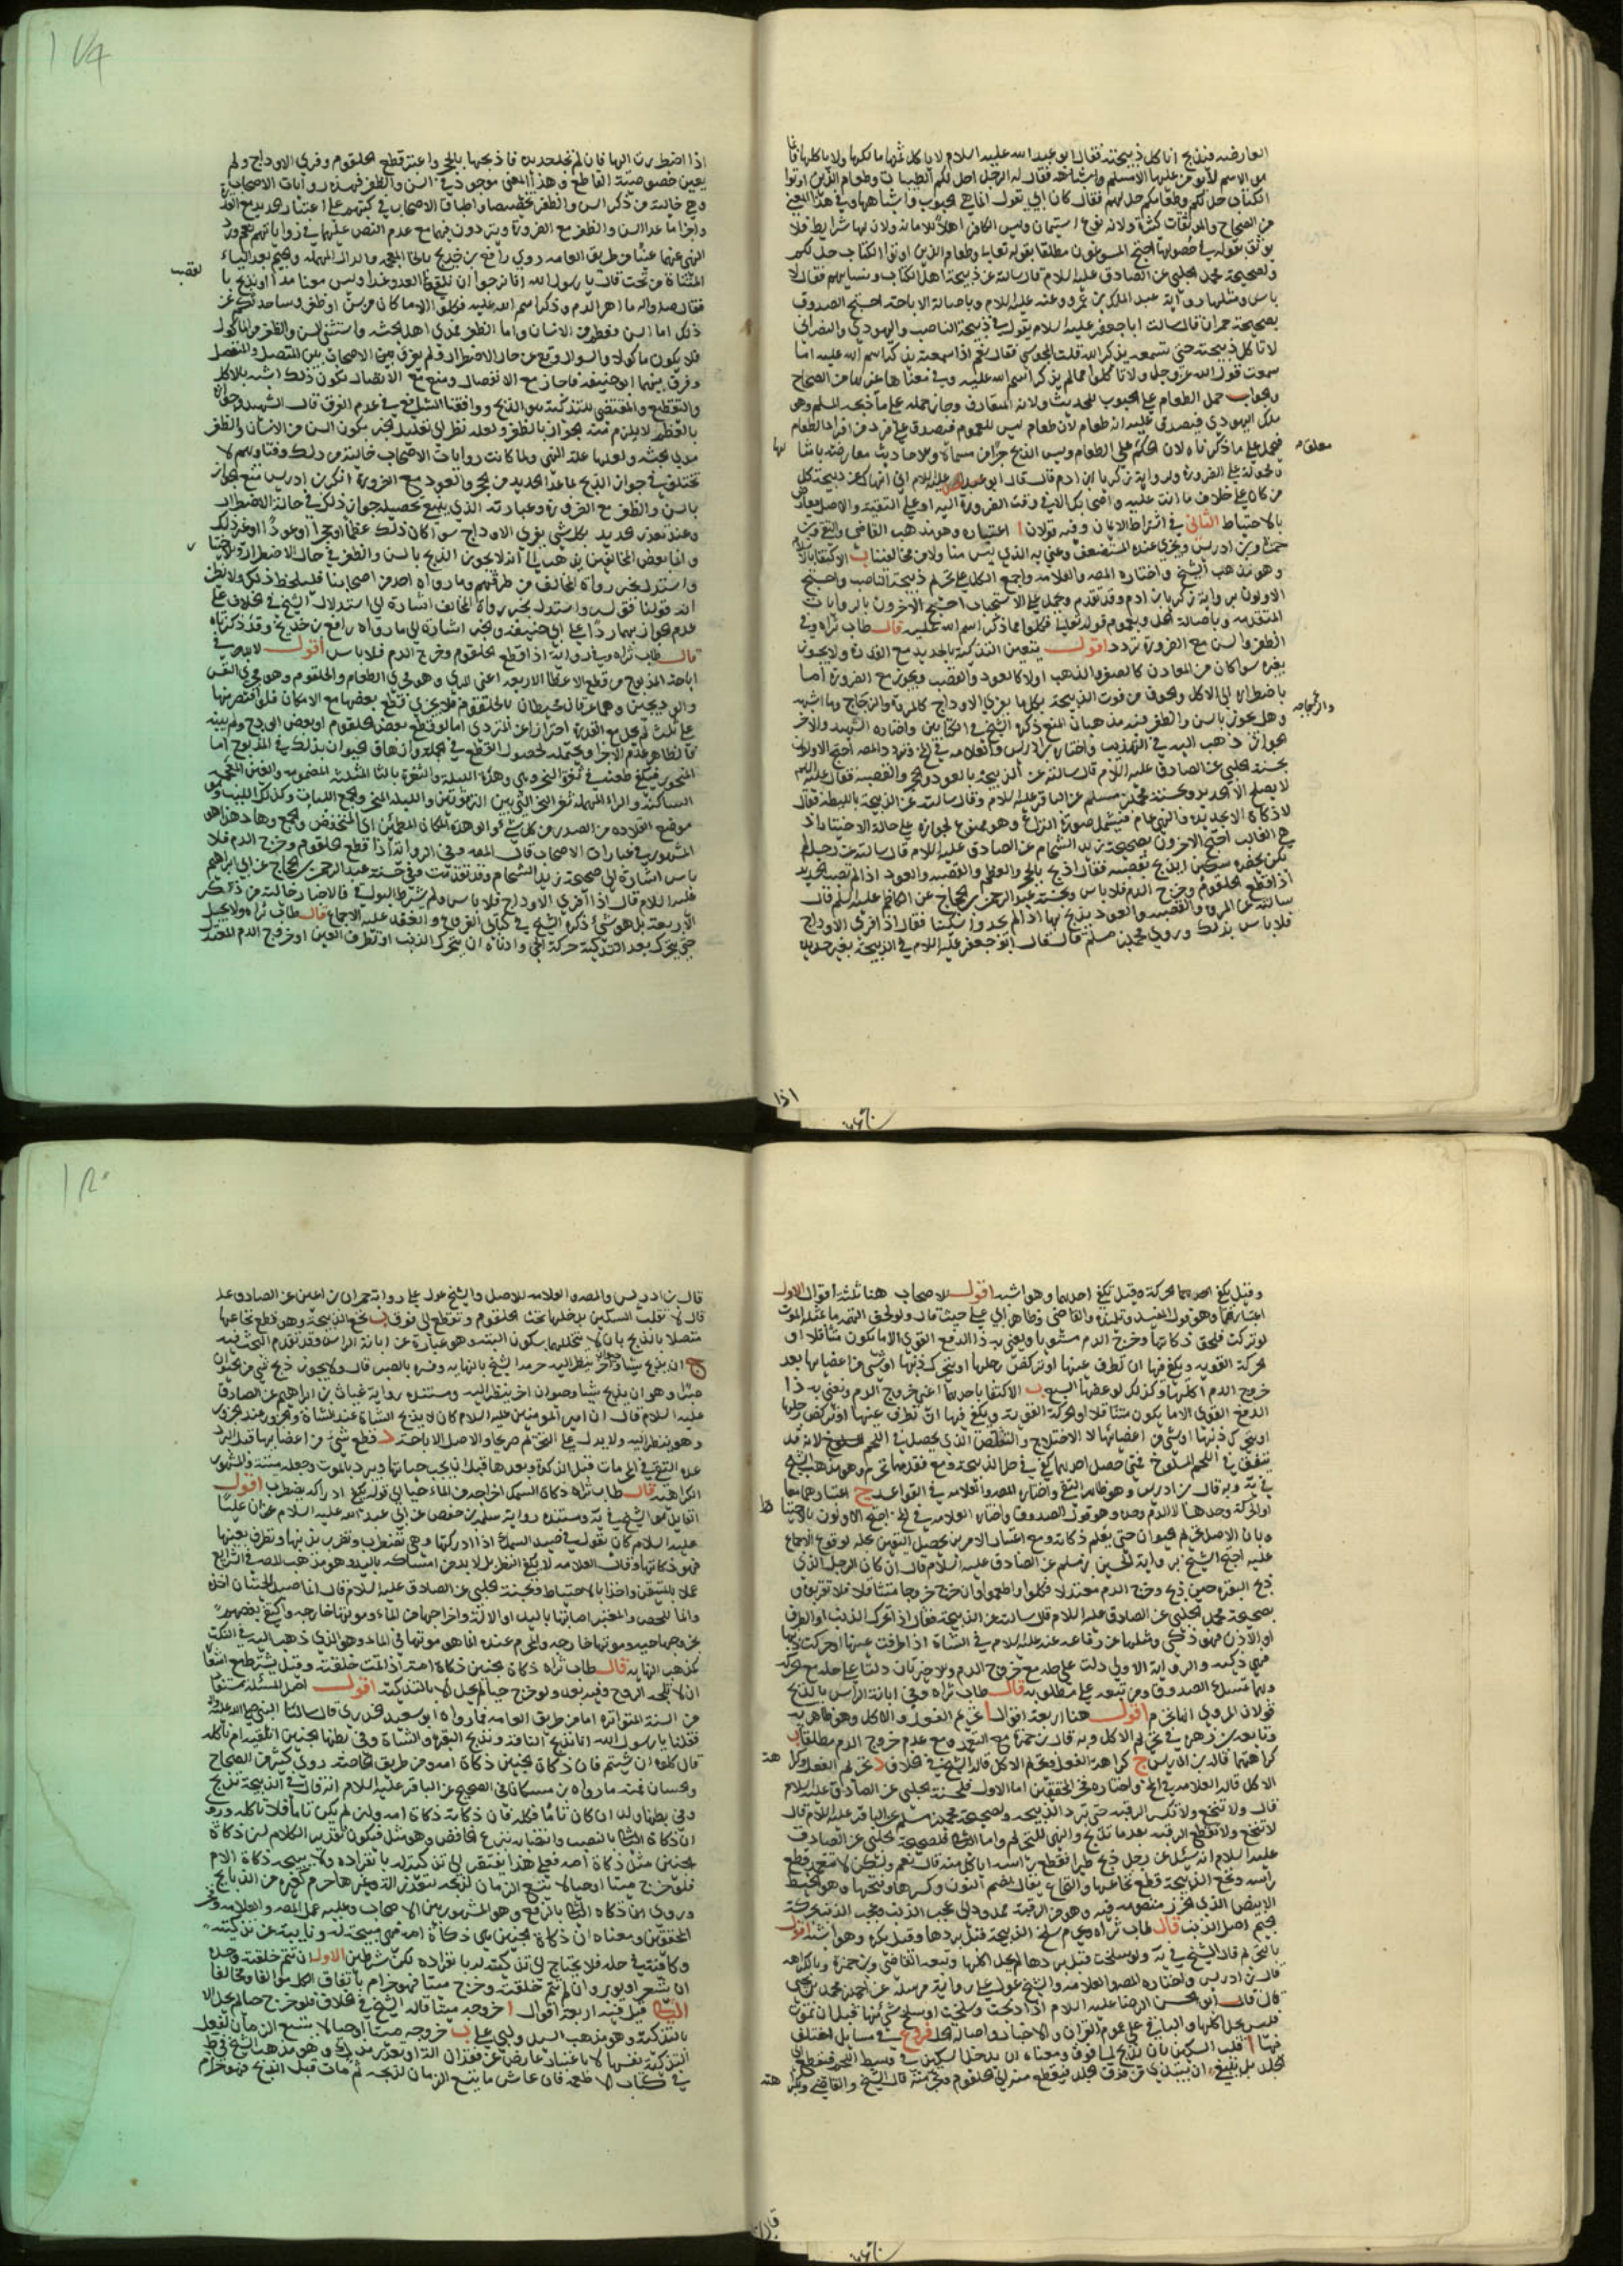 العارضه فنذبح انا كل ذبيحته فقال ابو عبد الله عليه السلام لا ياكل ثمنها مالكها ولا ياكلها فانما
هو الاسم لا يؤمن عليها الا مسلم فقال له الرجل احل لكم الطيبات وطعام الذين اوتوا
الكتاب حل لكم وطعامكم حل لهم فقال كان ابي يقول انما هي الحبوب واشباهها وفي هذا المعنى
من الصحاح والموثقات كثرة ولانه نوع استيمان وليس الكافر اهلا للامانه ولان لها شرايط فلا
يوثق بقوله في حصولها احتج المسوغون مطلقا بقوله تعالى وطعام الذين اوتوا الكتاب حل لكم
ولصحيحة محمد الحلبي عن الصادق عليه السلام قال سالته عن ذبيحة اهل الكتاب ونسايهم فقال لا
باس ومثلها رواية عبد الملك بن عمرو عنه عليه السلام وباصالة الاباحه احتج الصدوق
بصحيحة حمران قال سالت ابا جعفر عليه السلام يقول في ذبيحة الناصب واليهودي والنصراني
لا تاكل ذبيحته حتى تسمعه يذكر الله قلت المجوسي فقال نعم اذا سمعته يذكر اسم الله عليه اما
سمعت قول الله عز وجل ولا تاكلوا مما لم يذكر اسم الله عليه وفي معناها غيرها من الصحاح
والجواب حمل الطعام على الحبوب للحديث ولانه المتعارف وجاز حمله على ما ذبحه المسلم وهو
ملك اليهودي فيصدق عليه انه طعام لان طعام ليس للعموم فيصدق على فرد من افراد الطعام
فيحمل على ما ذكرناه لان الحكم على الطعام وليس الذبح جزأ من مسماه والاحاديث معارضه بامثالها
ومحمولة على الضرورة ولرواية زكريا بن ادم قال قال ابو عبد الله عليه السلام اني انهاك عن ذبيحة كل
من كان على خلاف ما انت عليه واصحابك الا في وقت الضرورة اليه او على التقيه والاصل معارض
بالاحتياط الثاني في اشتراط الايمان وفيه قولان ا اعتباره وهو مذهب القاضي والتقي وبن
حمزة وبن ادريس ويجزي عنده المستضعف وعنى به الذي ليس منا ولا من مخالفينا ب الاكتفا بالاسلام
وهو مذهب الشيخ واختاره المصـ والعلامه واجمع الكل على تحريم ذبيحة الناصب واحتج
الاولون برواية زكريا بن ادم وقد تقدم وتحمل على الاستحباب احتج الاخرون بالروايات
المتقدمه وباصالة الحل وبعموم قوله تعالى فكلوا مما ذكر اسم الله عليه قال طاب ثراه وفي
الظفر والسن مع الضرورة تردد اقول يتعين التذكية بالحديد مع القدرة ولا يجوز
بغيره سوا كان من المعادن كالصفر والذهب اولا كالعود والقصب ويجوز مع الضرورة اما
باضطراره الى الاكل والخوف من فوت الذبيحة بكل ما يفري الاوداج كالمروة والزجاج وما اشبه
وهل يجوز بالسن والظفر فيه مذهبان المنع ذكره الشيخ في الكتابين واختاره الشهيد والاخر
الجواز ذهب اليه في التهذيب واختاره بن ادريس والعلامه في لف وتردد المصـ احتج الاولون
بحسنة الحلبي عن الصادق عليه السلام قال سالته عن الذبيحة بالعود والحجر والقصبه فقال عليه السلم
لا يصلح الا بحديده وحسنة محمد بن مسلم عن الباقر عليه السلام وقال سالته عن الذبيحة بالليطه فقال
لا ذكاة الا بحديده والنهي عام فيشمل صورة النزاع وهو ممنوع لجوازه على حالة الاختيار اذ
هي الغالب احتج الاخرون بصحيحة زيد الشحام عن الصادق عليه السلام قال سالته عن رجل لم
يكن بحضره سكين ايذبح بقصبه فقال اذبح بالحجر والعظم والقصبه والعود اذا لم تصب الحديد
اذا قطع الحلقوم وخرج الدم فلا باس وبحسنة عبد الرحمن بن الحجاج عن الكاظم عليه السلم قال
سالته عن المروة والقصبه والعود يذبح بها اذا لم يجدوا سكينا فقال اذا فرى الاوداج
فلا باس بذلك وروي محمد بن مسلم قال قال ابو جعفر عليه السلام في الذبيحة بغير حديده
والزجاجه
اذا
اذا اضطررت اليها فان لم تجد حديده فاذبحها بالحجر واعتبر قطع الحلقوم وفري الاوداج ولم
يعين خصوصية القاطع وهذا المعنى موجود في السن والظفر فهذه روايات الاصحاب
وهي خالية من ذكر السن والظفر تخصيصا واطباق الاصحاب في كتبهم على اعتبار الحديد مع القدرة
واجزا ما عدا السن والظفر مع الضرورة ويترددون فيهما مع عدم النص عليهما في رواياتهم نعم ورد
النهي عنهما عينا من طريق العامه روي رافع بن خديج بالخا المعجمه والدال المهمله والجيم بعد الياء
المثناة من تحت قال يا رسول الله انا نرجوا ان نلقى العدو غدا وليس معنا مدا اونذبح با
لقصب
فقال صلى الله عليه واله ما انهر الدم وذكر اسم الله عليه فكلوا الا ما كان من سن او ظفر وساحدثكم عن
ذلك اما السن فعظم من الانسان واما الظفر فمدى اهل الحبشه واستثنى السن والظفر من الماكول
فلا يكون ماكولا والسوال وقع عن حال الاضطرار ولم يفرق بين الاصحاب بين المتصل والمنفصل
وفرق بينهما ابو حنيفه فاجاز مع الانفصال ومنع مع الاتصال لكون ذلك اشبه بالاكل
والتقطيع والمقتضي للتذكية هو الذبح ووافقنا الشافعي في عدم الفرق قال الشهيد
مدي الحبشه ولعلها علة النهي ولما كانت روايات الاصحاب خالية من ذلك وفتاويهم لا
تختلف في جواز الذبح بما عدا الحديد من الحجر والعود مع الضرورة انكر بن ادريس منع الجواز
بالسن والظفر مع الضرورة وعبارته الذي ينبغي تحصيله جواز ذلك في حالة الاضطرار
وعند تعذر الحديد بكل شي يفري الاوداج سوا كان ذلك عظما او حجرا او عودا او غير ذلك
وانما بعض المخالفين يذهب الى انه لا يجوز الذبح بالسن والظفر في حال الاضطرار
واستدل بخبر رواه المخالف من طرقهم وما رواه احد من اصحابنا فليلحظ ذلك ولا يظن
انه قولنا فقوله واستدل بخبر رواه المخالف اشارة الى استدلال الشيخ في الخلاف على
عدم الجواز بهما ردا على ابي حنيفه والخبر اشارة الى ما رواه رافع بن خديج وقد ذكرناه
قال طاب ثراه وفي رواية اذا قطع الحلقوم وخرج الدم فلا باس اقول لا بد في
اباحة المذبوح من قطع الاعضا الاربعه اعني المري وهو مجرى الطعام والحلقوم وهو مجرى النفس
والودجين وهما عرقان محيطان بالحلقوم فلا يجزي قطع بعضها مع الامكان فلو اقتصر منها
على ثلث لم يحل مع القدرة احترازا عن المتردي اما لو قطع بعض الحلقوم او بعض الودج ولم يبنه
فالظاهر عدم الاجزا ويحتمله لحصول القطع في الجملة وازهاق الحيوان بذلك في المذبوح اما
المنحور فيكفي طعنه في ثغرة النحر وهي وهدة اللبة والثغرة بالثا المثلثه المضمومه والغين المعجمه
الساكنة والراء المهمله ثغر النحر التي بين الترقوتين والليه المنحر والجمع اللبات وكذلك اللبب وهو
موضع القلاده من الصدر من كل شي والوهدة المكان المطمئن اي المنخفض والجمع وهاد هذا هو
المشهور في عبارات الاصحاب قال المصـ وفي الرواية اذا قطع الحلقوم وخرج الدم فلا
باس اشارة الى صحيحة زيد الشحام وقد تقدمت وفي حسنة عبد الرحمن بن الحجاج عن ابي ابراهيم
عليه السلام قال اذا فرى الاوداج فلا باس ولم يشترط البواقي فالاخبار خالية من ذكر
الاربعة بل هو شي ذكره الشيخ في كتابي الفروع وانعقد عليه الاجماع قال طاب ثراه ولا يحل
حتى يتحرك بعد التذكية حركة الحي وادناه ان يتحرك الذنب او تطرف العين او خروج الدم المعتدل
وقيل يكفي احدهما الحركة وقيل يكفي احدهما وهو اشبه اقول للاصحاب هنا ثلثة اقوال الاول
اعتبارهما وهو قول المفيد وتلميذه والقاضي وظاهر ابي علي حيث قال ولو لحق البهيمه ما مثله الموت
لو تركت فلحق ذكاتها وخرج الدم مستويا ويعني به ذا الدفع القوي الا ما يكون متثاقلا او
الحركة القوية ويكفي فيها ان تطرف عينها او تركض رجلها او يتحرك ذنبها او شي من اعضايها بعد
خروج الدم اكلها وكذلك لو عضها السبع ب الاكتفا باحدهما اعني خروج الدم ونعني به ذا
الدفع القوي الا ما يكون متثاقلا او الحركة القوية ويكفي فيها ان تطرف عينها او تركض رجلها
او يتحرك ذنبها او شي من اعضائها لا الاختلاج والتقلص الذي يحصل في اللحم المسلوخ لانه قد
يتفق في اللحم المسلوخ فمتى حصل احدهما كفى في حل الذبيحة ومع فقدهما تحرم وهو مذهب الشيخ
في يه وبه قال بن ادريس وهو ظاهر التقي واختاره المصـ والعلامه في القواعد ج اعتبارهما معا
او الحركة وحدها لا الدم وحده وهو قول الصدوق واختاره العلامه في لف احتج الاولون بالاحتياط
وبان الاصل تحريم الحيوان حتى يعلم ذكاته ومع اعتبار الامرين يحصل اليقين بحله لوقوع الاجماع
عليه احتج الشيخ برواية الحسين بن مسلم عن الصادق عليه السلام قال ان كان الرجل الذي
ذبح البقرة حين ذبح وخرج الدم معتدلا فكلوا واطعموا وان خرج خروجا متثاقلا فلا تقربوه و
بصحيحة محمد الحلبي عن الصادق عليه السلام قال سالته عن الذبيحة فقال اذا تحرك الذنب او الطرف
او الاذن فهو ذكي ومثلها عن رفاعه عنه عليه السلام في الشاة اذا طرفت عينها او حركت ذنبها
فهي ذكيه والرواية الاولى دلت على حله مع خروج الدم والاخريان دلتا على حله مع الحركه
وبها تمسك الصدوق ومن تبعه على مطلوبه قال طاب ثراه وفي ابانة الراس بالذبح
قولان المروي انها تحرم اقول هنا اربعة اقوال ا تحريم الفعل والاكل وهو ظاهر يه
وتابعه بن زهره في تحريم الاكل وبه قال بن حمزة مع التعمد ومع عدم خروج الدم مطلقا ب
كراهتهما قاله بن ادريس ج كراهة الفعل وتحريم الاكل قاله الشيخ في الخلاف د تحريم الفعل وكراهة
الاكل قاله العلامه في لف واختاره فخر المحققين اما الاول فلحسنة الحلبي عن الصادق عليه السلام
قال ولا تنخع ولا تكسر الرقبه حتى تبرد الذبيحه ولصحيحة محمد بن مسلم عن الباقر عليه السلام قال
لا تنخع ولا تقطع الرقبه بعد ما تذبح والنهي للتحريم واما الثاني فلصحيحة الحلبي عن الصادق
عليه السلام انه سئل عن رجل ذبح طيرا فقطع راسه اياكل منه قال نعم ولكن لا يتعمد قطع
راسه ونخع الذبيحة قطع نخاعها والنخاع يقال بضم النون وكسرها وفتحها وهو الخيط
الابيض الذي الخرز منضومه فيه وهو من الرقبه ممدود الى عجب الذنب وعجب الذنب بحركة
الجيم اصل الذنب قال طاب ثراه ويحرم سلخ الذبيحه قبل بردها وقيل يكره وهو اشبه اقول
بالتحريم قال الشيخ في يه ولو سلخت قبل بردها لم يحل اكلها وتبعه القاضي وبن حمزة وبالكراهه
قال بن ادريس واختاره المصـ والعلامه والشيخ عول على رواية مرسلة عن احمد بن محمد بن يحيى
قال قال ابو الحسن الرضا عليه السلام اذا ذبحت وسلخت او سلخ شي منها قبل ان تموت
فليس يحل اكلها والباقي على عموم القران والاخبار واصالة الحل فروع في مسايل اختلف
فيها ا قلب السكين بان يذبح الى فوق ومعناه ان يدخل السكين في وسط اللحم فيقطع الى
الجلد بل ينبغي ان يبتدي من فوق الجلد فيقطع منه الى الحلقوم وتحريمه قال الشيخ والقاضي وبكراهته
قال بن
قال بن ادريس والمصـ والعلامه للاصل والشيخ عول على رواية حمران بن اعين عن الصادق عليه
قال لا تقلب السكين يدخلها تحت الحلقوم وتقطع الى فوق ب نخع الذبيحة وهو قطع نخاعها
متصلا بالذبح بان لا يتخللهما سكون البته وهو عبارة عن ابانة الراس وقد تقدم البحث فيه
ج ان يذبح شيا واخر ينظر اليه حرمه الشيخ بالنهايه وفسره بالصبر قال ولا يجوز ذبح شي من الحيوان
صبرا وهو ان يذبح شيا وحيوان اخر ينظر اليه ومستنده رواية غياث بن ابراهيم عن الصادق
عليه السلام قال ان امير المومنين عليه السلام كان لا يذبح الشاة عند الشاة والجزور عند الجزور
وهو ينظر اليه ولا يدل على التحريم صريحا والاصل الاباحه د قطع شي من اعضايها قبل البرد
عده التقي في المحرمات قبل الذكوة وبعدها قبل ان يجب حياتها ويبرد بالموت وجعله ميتة والمشهور
الكراهيه قال طاب ثراه ذكاة السمك اخراجه من الماء حيا الى قوله يكفي ادراكه يضطرب اقول
القايل هو الشيخ في يه ومستنده رواية سلمة بن حفص عن ابي عبد الله عليه السلام عن ان عليا
عليه السلام كان يقول في صيد السمكة اذا ادركتها وهي تضطرب وتضرب بذنبها وتطرف بعينها
فهي ذكاتها وقال العلامه لا يكفي النظر بل لا بد من امساكه باليد وهو مذهب المصـ في الشرايع
عملا بالمتيقن واخذا بالاحتياط ولحسنة الحلبي عن الصادق عليه السلام قال انما صيد الحيتان اخذه
وانما للحصر والمعتبر اصابتها باليد او الالة واخراجها من الماء وموتها خارجه واكتفى بعضهم
بخروجها حيه وموتها خارجه والمحرم عنده انما هو موتها في الماء وهو الذي ذهب اليه في النكت
كمذهب النهايه قال طاب ثراه ذكاة الجنين ذكاة امه اذا تمت خلقته وقيل يشترط مع اشعاره
ان لا تلجه الروح وفيه بعد ولو خرج حيا لم يحل الا بالتذكية اقول اصل المسئله مستفاد
من السنة المتواتره اما من طريق العامه فما رواه ابو سعيد الخدري قال سالنا النبي صلى الله عليه واله
فقلنا يا رسول الله انا نذبح الناقة ونذبح البقره والشاة وفي بطنها الجنين انلقيه ام ناكله
قال كلوه ان شيتم فان ذكاة الجنين ذكاة امه ومن طريق الخاصه روي كثير من الصحاح
والحسان فمنه ما رواه بن مسكان في الصحيح عن الباقر عليه السلام انه قال في الذبيحة تذبح
وفي بطنها ولد ان كان تاما فكله فان ذكاته ذكاة امه وان لم يكن تاما فلا تاكله وروي
ان ذكاة الثاني بالنصب وانتصابه بنزع الخافض وهو مثل فيكون تقدير الكلام ان ذكاة
الجنين مثل ذكاة امه فعلى هذا يفتقر الى تذكيته بانفراده ولا يبيحه ذكاة الام
فلو خرج ميتا او حيا لا يتسع الزمان لذبحه لتعذر الة وغيرها حرم كغيره من الذبايح
وروي ان ذكاة الثاني بالرفع وهو المشهور بين الاصحاب وعليه عمل المصـ والعلامه وفخر
المحققين ومعناه ان ذكاة الجنين هي ذكاة امه فهي مبيحة له ونايبة عن تذكيته
وكافية في حله فلا يحتاج الى تذكيته بانفراده لكن بشرطين الاول ان تتم خلقته وحده
ان يشعر او يوبر وان لم يتم خلقته وخرج ميتا فهو حرام باتفاق الكل موالفا ومخالفا
الثاني قيل فيه اربعة اقوال ا خروجه ميتا قاله الشيخ في الخلاف فلو خرج حيا لم يحل الا
بالتذكية وهو مذهب السيد وابي علي ب خروجه ميتا او حيا لا يتسع الزمان لفعل
التذكية بنفسها لا باعتبار عارض عن فقدان الة او تعذر مذك وهو مذهب الشيخ في ط
في كتاب الاطعمه فان عاش ما يتسع الزمان لذبحه ثم مات قبل الذبح فهو حرام